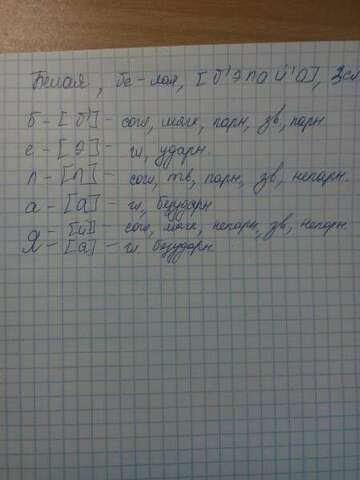 Белая, бе-лая, [б'элай'а], 3сл
б - [б'] - согл, мягк, парн, зв, парн
е - [э] - гл, ударн.
л - [л] - согл, тв, парн, зв, непарн.
а - [а] - гл, безударн
я - [й] - согл, мягк, непарн, зв, непарн
- [а] - гл безударн